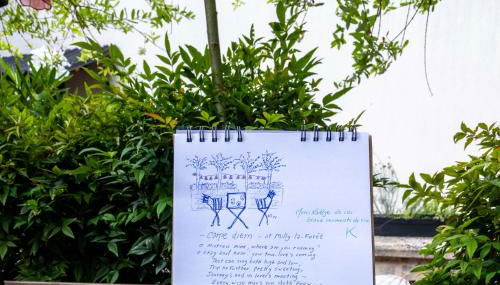 - Carpe diem - at Milly la-Forêt
O mistress mine, where are you roaming?
O stay and hear your true love's coming
That can sing both high and low,
Trip no further pretty sweeting,
Journey's end in lover's meeting -
Every wise man's son doth know
de ces
moments de vie
K